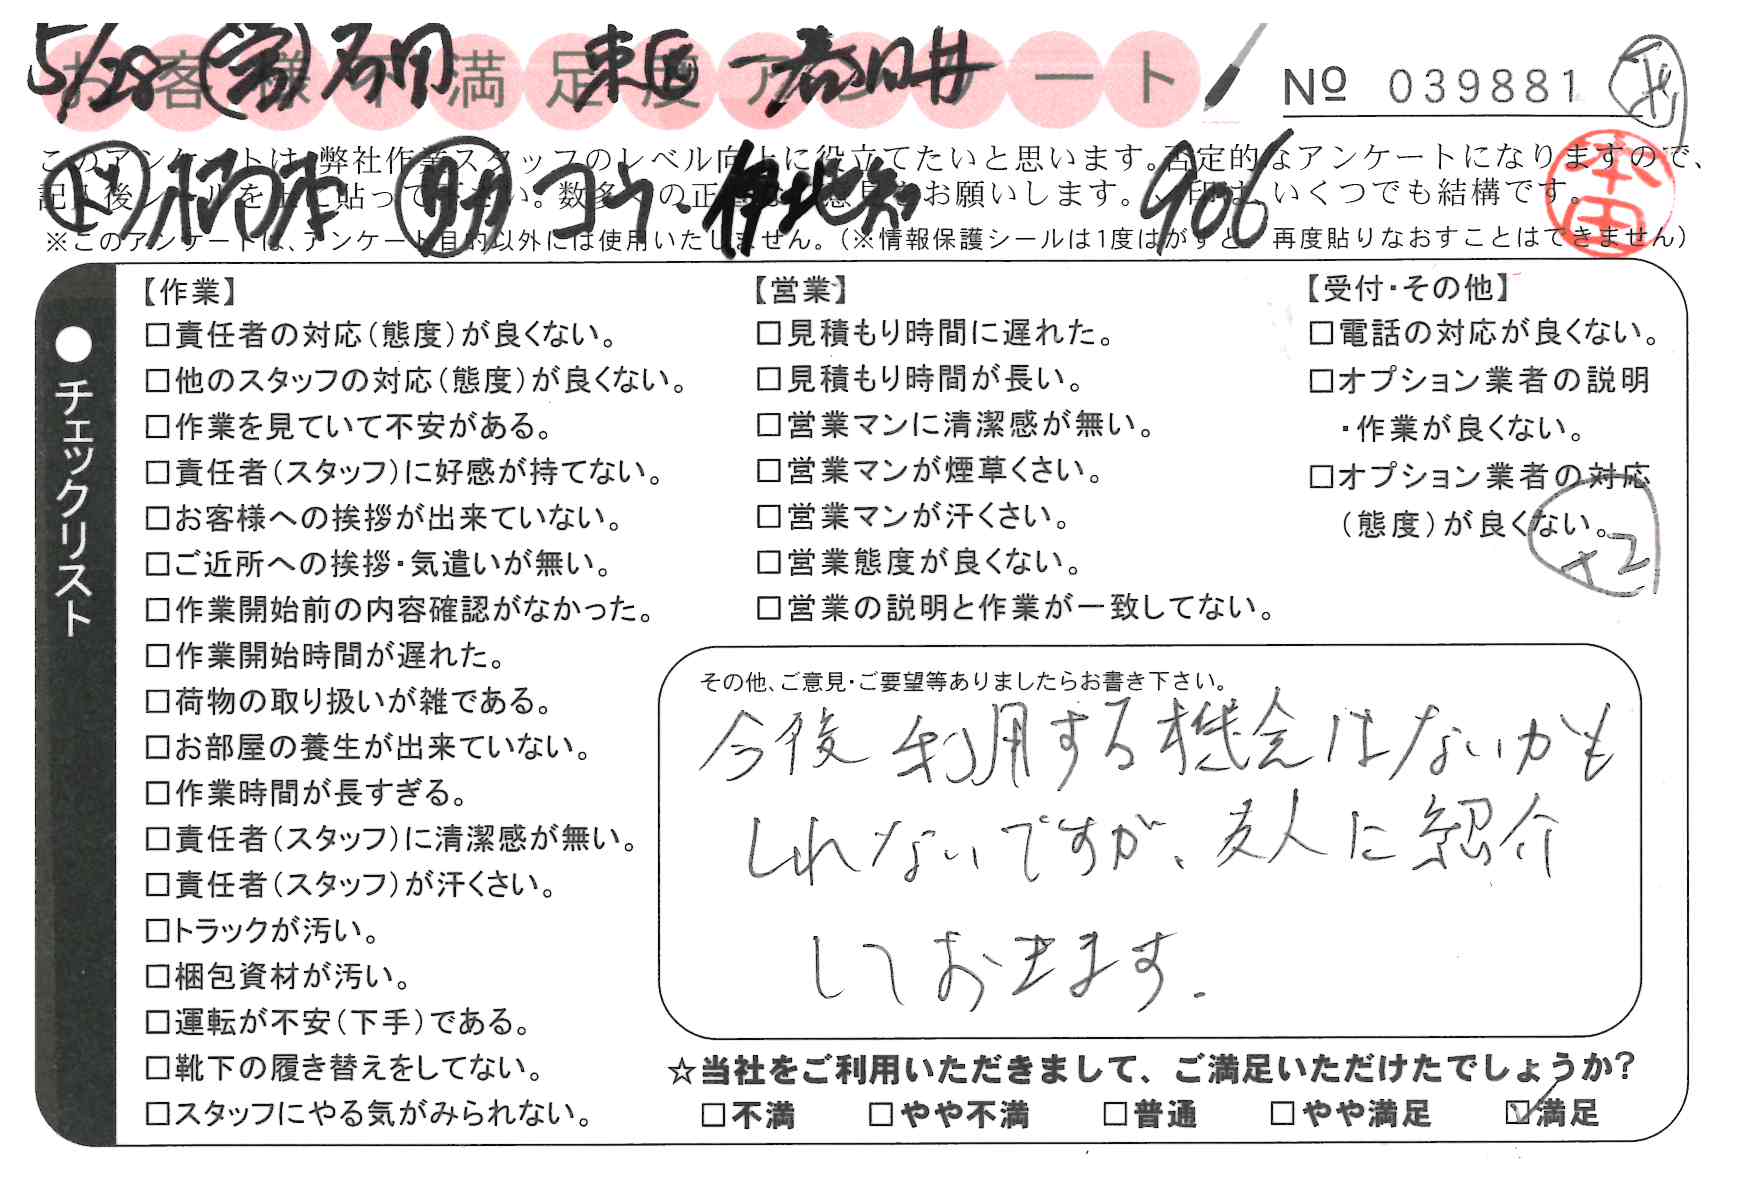 5/28 営 石田 東区→春日井
お客様不満足度アンケート
№ 039881
このアンケートは、弊社作業スタッフのレベル向上に役立てたいと思います。否定的なアンケートになりますので、
記入後シールを上に貼って下さい。数多くの正直なご意見をお願いします。✓印は、いくつでも結構です。
助 コウ・伊北 906
本田
※このアンケートは、アンケート目的以外には使用いたしません。(※情報保護シールは1度はがすと、再度貼りなおすことはできません)
●チェックリスト
【作業】
□責任者の対応(態度)が良くない。
□他のスタッフの対応(態度)が良くない。
□作業を見ていて不安がある。
□責任者(スタッフ)に好感が持てない。
□お客様への挨拶が出来ていない。
□ご近所への挨拶・気遣いが無い。
□作業開始前の内容確認がなかった。
□作業開始時間が遅れた。
□荷物の取り扱いが雑である。
□お部屋の養生が出来ていない。
□作業時間が長すぎる。
□責任者(スタッフ)に清潔感が無い。
□責任者(スタッフ)が汗くさい。
□トラックが汚い。
□梱包資材が汚い。
□運転が不安(下手)である。
□靴下の履き替えをしてない。
□スタッフにやる気がみられない。
【営業】
□見積もり時間に遅れた。
□見積もり時間が長い。
□営業マンに清潔感が無い。
□営業マンが煙草くさい。
□営業マンが汗くさい。
□営業態度が良くない。
□営業の説明と作業が一致してない。
【受付・その他】
□電話の対応が良くない。
□オプション業者の説明
・作業が良くない。
□オプション業者の対応
(態度)が良くない。
×2
その他、ご意見・ご要望等ありましたらお書き下さい。
今後利用する機会はないかも
しれないですが、友人に紹介
しておきます.
☆当社をご利用いただきまして、ご満足いただけたでしょうか?
□不満 □やや不満 □普通 □やや満足 ☑満足